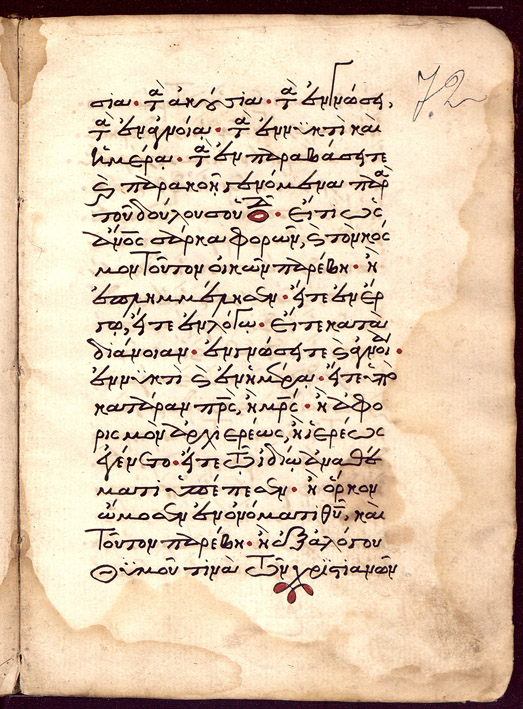 72
σια· τὰ ἀκούσια· τὰ ἐν γνώσει,
τὰ ἐν ἀγνοία· τὰ ἐν νυκτὶ καὶ
ἡμέρα· τὰ ἐν παραβάσει τε
ϗ παρακοῆ γενόμενα παρὰ
τοῦ δούλου σου Δ· Εἴ τι ὡς
ἄνος σάρκα φορῶν, ϗ τὸν κόσ
μον τοῦτον οἰκῶν παρέβη· ἢ
ἐπλημμέλησεν· εἴτε ἐν ἔρ
γω, εἴτε ἐν λόγω· εἴτε κατὰ
διάνοιαν· ἐν γνώσει τε ϗ ἀγνοί·
ἐν νυκτὶ ϗ ἐν ἡμέρα· εἴτε ὑπὸ
κατάραν πρς, ἢ μρς· ἢ ἀφο
ρισμὸν ἀρχιερέως, ἢ ἱερέως
ἐγένετο· εἴτε τῶ ἰδίω ἀναθέ
ματι ὑπέπεσεν· ἢ ὅρκον
ὤμοσεν ἐν ὀνόματι θῦ, καὶ
τοῦτον παρέβη· ἢ ἐξ ἀλόγου
θυμοῦ τινὰ τῶν χριστιανῶν